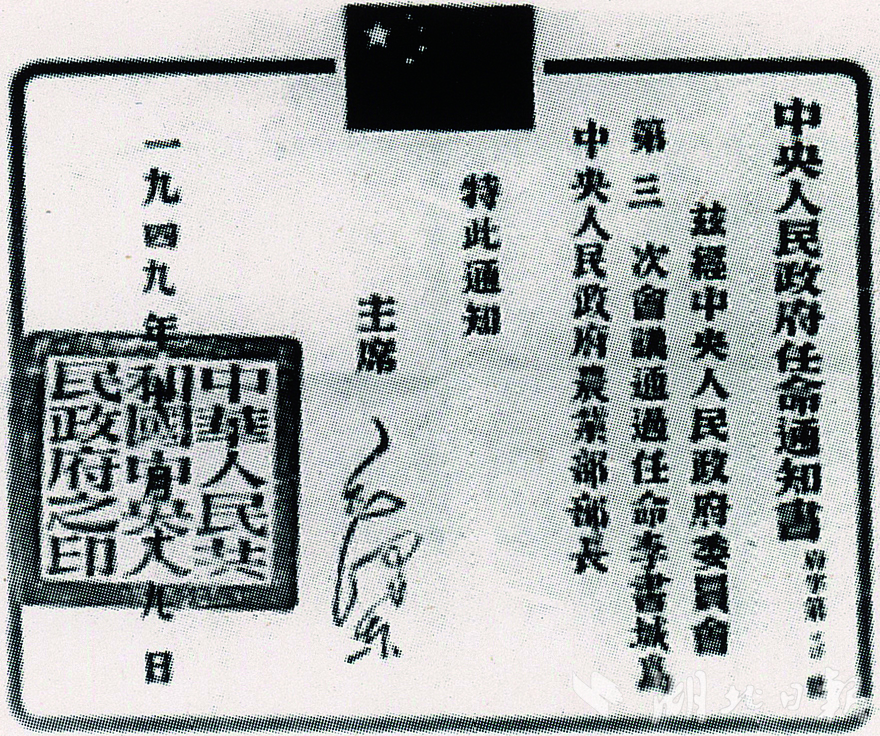 中央人民政府任命通知書
府字第 號
茲經中央人民政府委員會
第三次會議通過任命李書城爲
中央人民政府農業部部長
特此通知
主席
一九四九年 月 九日
中華人民共
和國中央人
民政府之印
湖北日报